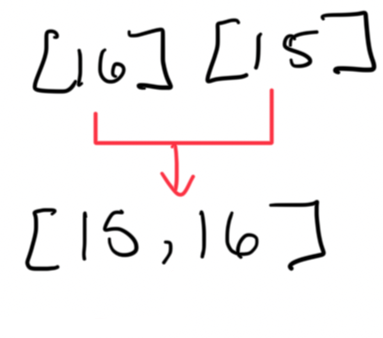 [16] [15]
[15, 16]